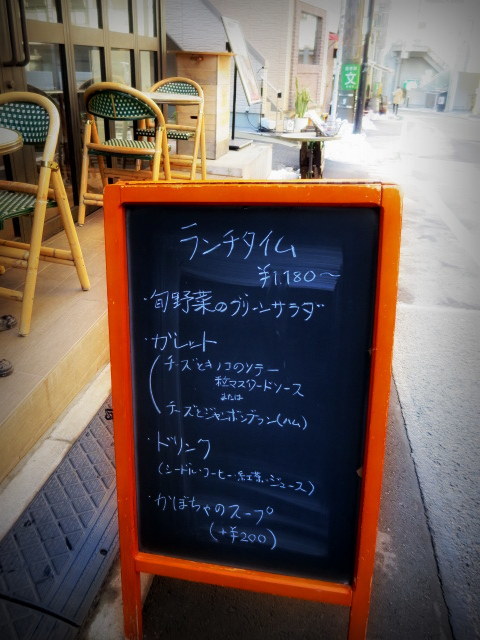 文
ランチタイム
¥1,180～
・旬野菜のグリーンサラダ
・ガレット
(チーズときのこのソテー
粒マスタードソース
または
チーズとジャンボンブラン(ハム)
・ドリンク
(シードル・コーヒー・紅茶・ジュース)
・かぼちゃのスープ
(+¥200)